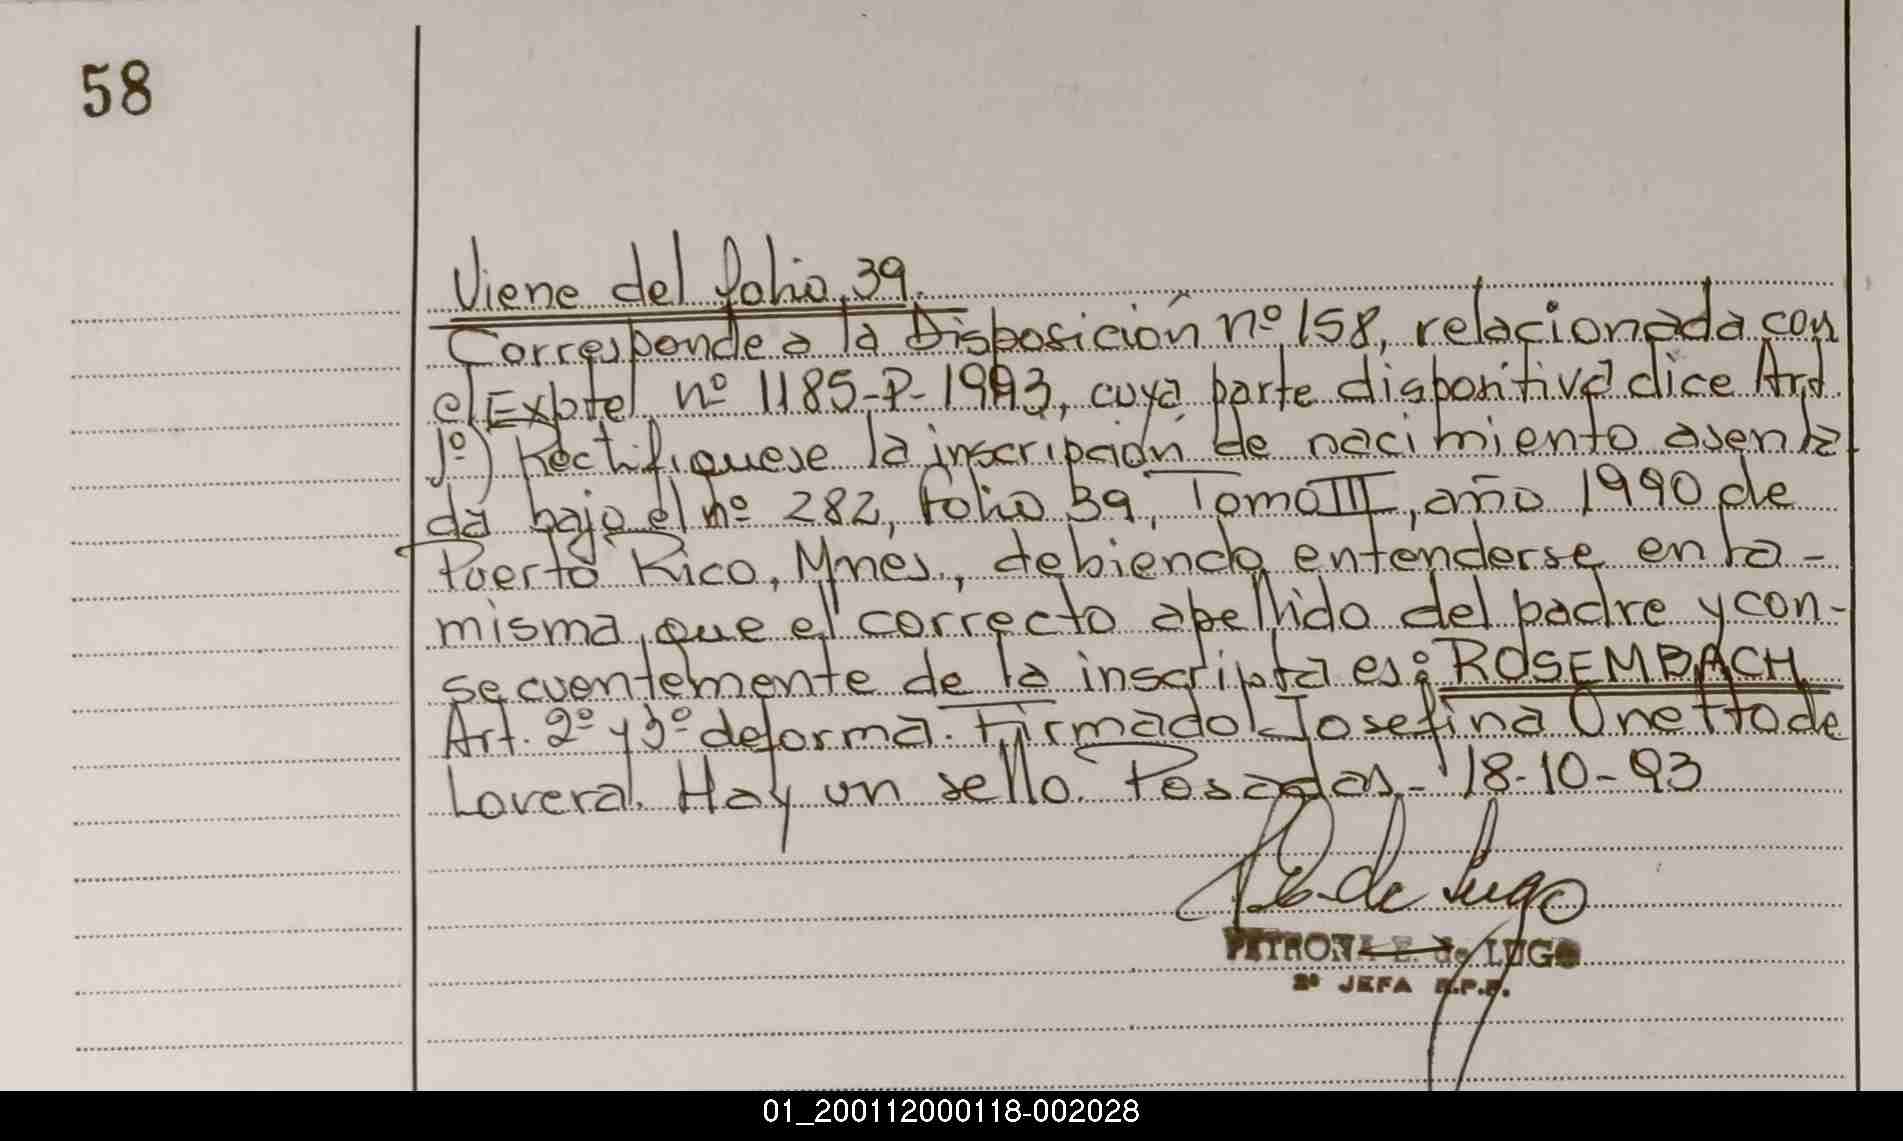 58
Viene del folio 39.
Corresponde a la Disposición nº 158, relacionada con
el Expte. nº 1185-P-1993, cuya parte dispositiva dice Art.
1º) Rectifíquese la inscripción de nacimiento asenta-
da bajo el nº 282, folio 39, Tomo III, año 1990 de
Puerto Rico, Mnes., debiendo entenderse en la -
misma, que el correcto apellido del padre y con-
secuentemente de la inscripta es: ROSEMBACH
Art. 2º y 3º de forma. Firmado Josefina Onetto de
Lovera. Hay un sello. Posadas - 18-10-93
P E. de Lugo
PETRONA E. de LUGO
2º JEFA R.P.P.
01_200112000118-002028